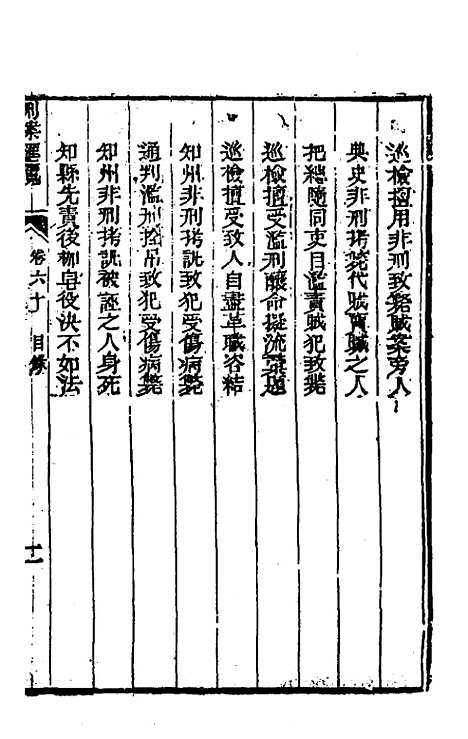 巡檢擅用非刑致斃賊案旁人
典史非刑拷斃代賊賣贓之人
把總隨同吏目濫責賊犯致斃
巡檢擅受濫刑釀命擬流專題
巡檢擅受致人自盡革職咨結
知州非刑拷訊致犯受傷病斃
通判濫刑拴吊致犯受傷病斃
知州非刑拷訊被誣之人身死
知縣先責後枷皂役決不如法
刑案匯覽
卷六十 目錄
十一